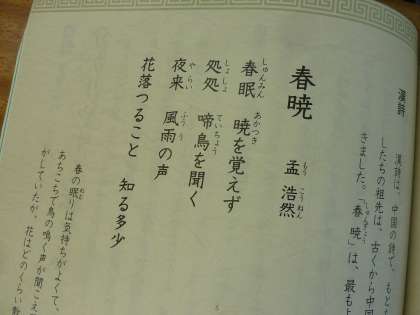 漢詩
漢詩は、中国の詩で、もと
したちの祖先は、古くから中国
きました。「春暁」は、最も
春暁
孟浩然
春眠 暁を覚えず
処処 啼鳥を聞く
夜来 風雨の声
花落つること 知る多少
春の眠りは気持ちがよくて、
あちこちで鳥の鳴く声が聞こえ
がしていたが、花はどのくらい